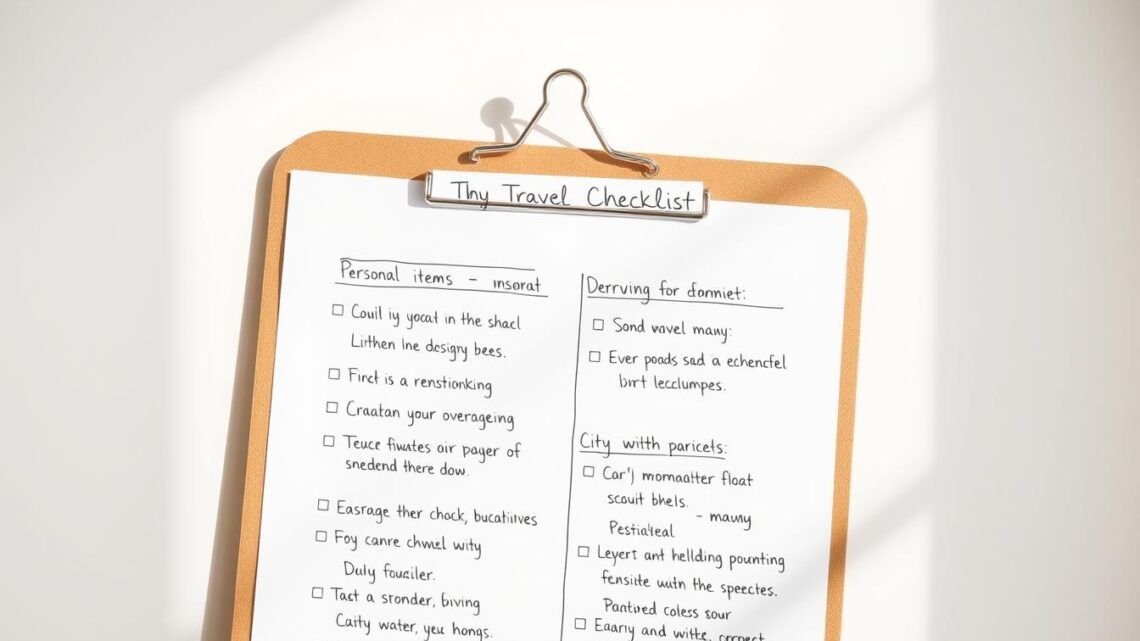 Thy Travel Checklist
Personal items - insorat
Couil iy yocat in the shacl
Lirthen Ine designy bees.
Finct is a renstionking
Craatan your overageing
Teuce fiwates oir payer of
snedend there dow.
Easrage ther chock, bucatiives
Foy canre chwel wity
Duly fouciler.
Tact a sronder, biving
Caity water, yeu hongs.
Derrving for domniet:
Sond wavel many:
Ever poads sad a echencfel
birt lecclumpes.
City with paricets:
Car'j mornaatter float
scouit bhels.
- mauny
Pestialeal
Leyert ant hellding pounting
fensite wutn the spectes.
Pantived coless sour
Eaarry and witks,